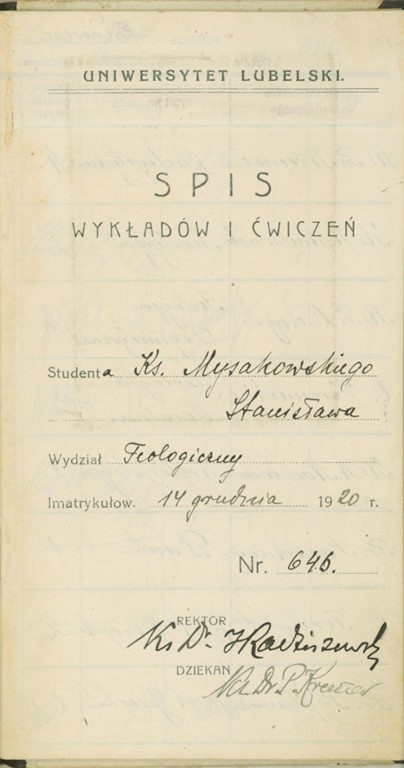 UNIWERSYTET LUBELSKI.
SPIS
WYKŁADÓW I ĆWICZEŃ
Studenta Ks. Mysakowskiego
Stanisława
Wydział Teologiczny
Imatrykułow. 14 grudnia 1920 r.
Nr. 646.
REKTOR
Ks Dr. I Radziszewski
DZIEKAN
Ks. Dr. P. Kremer